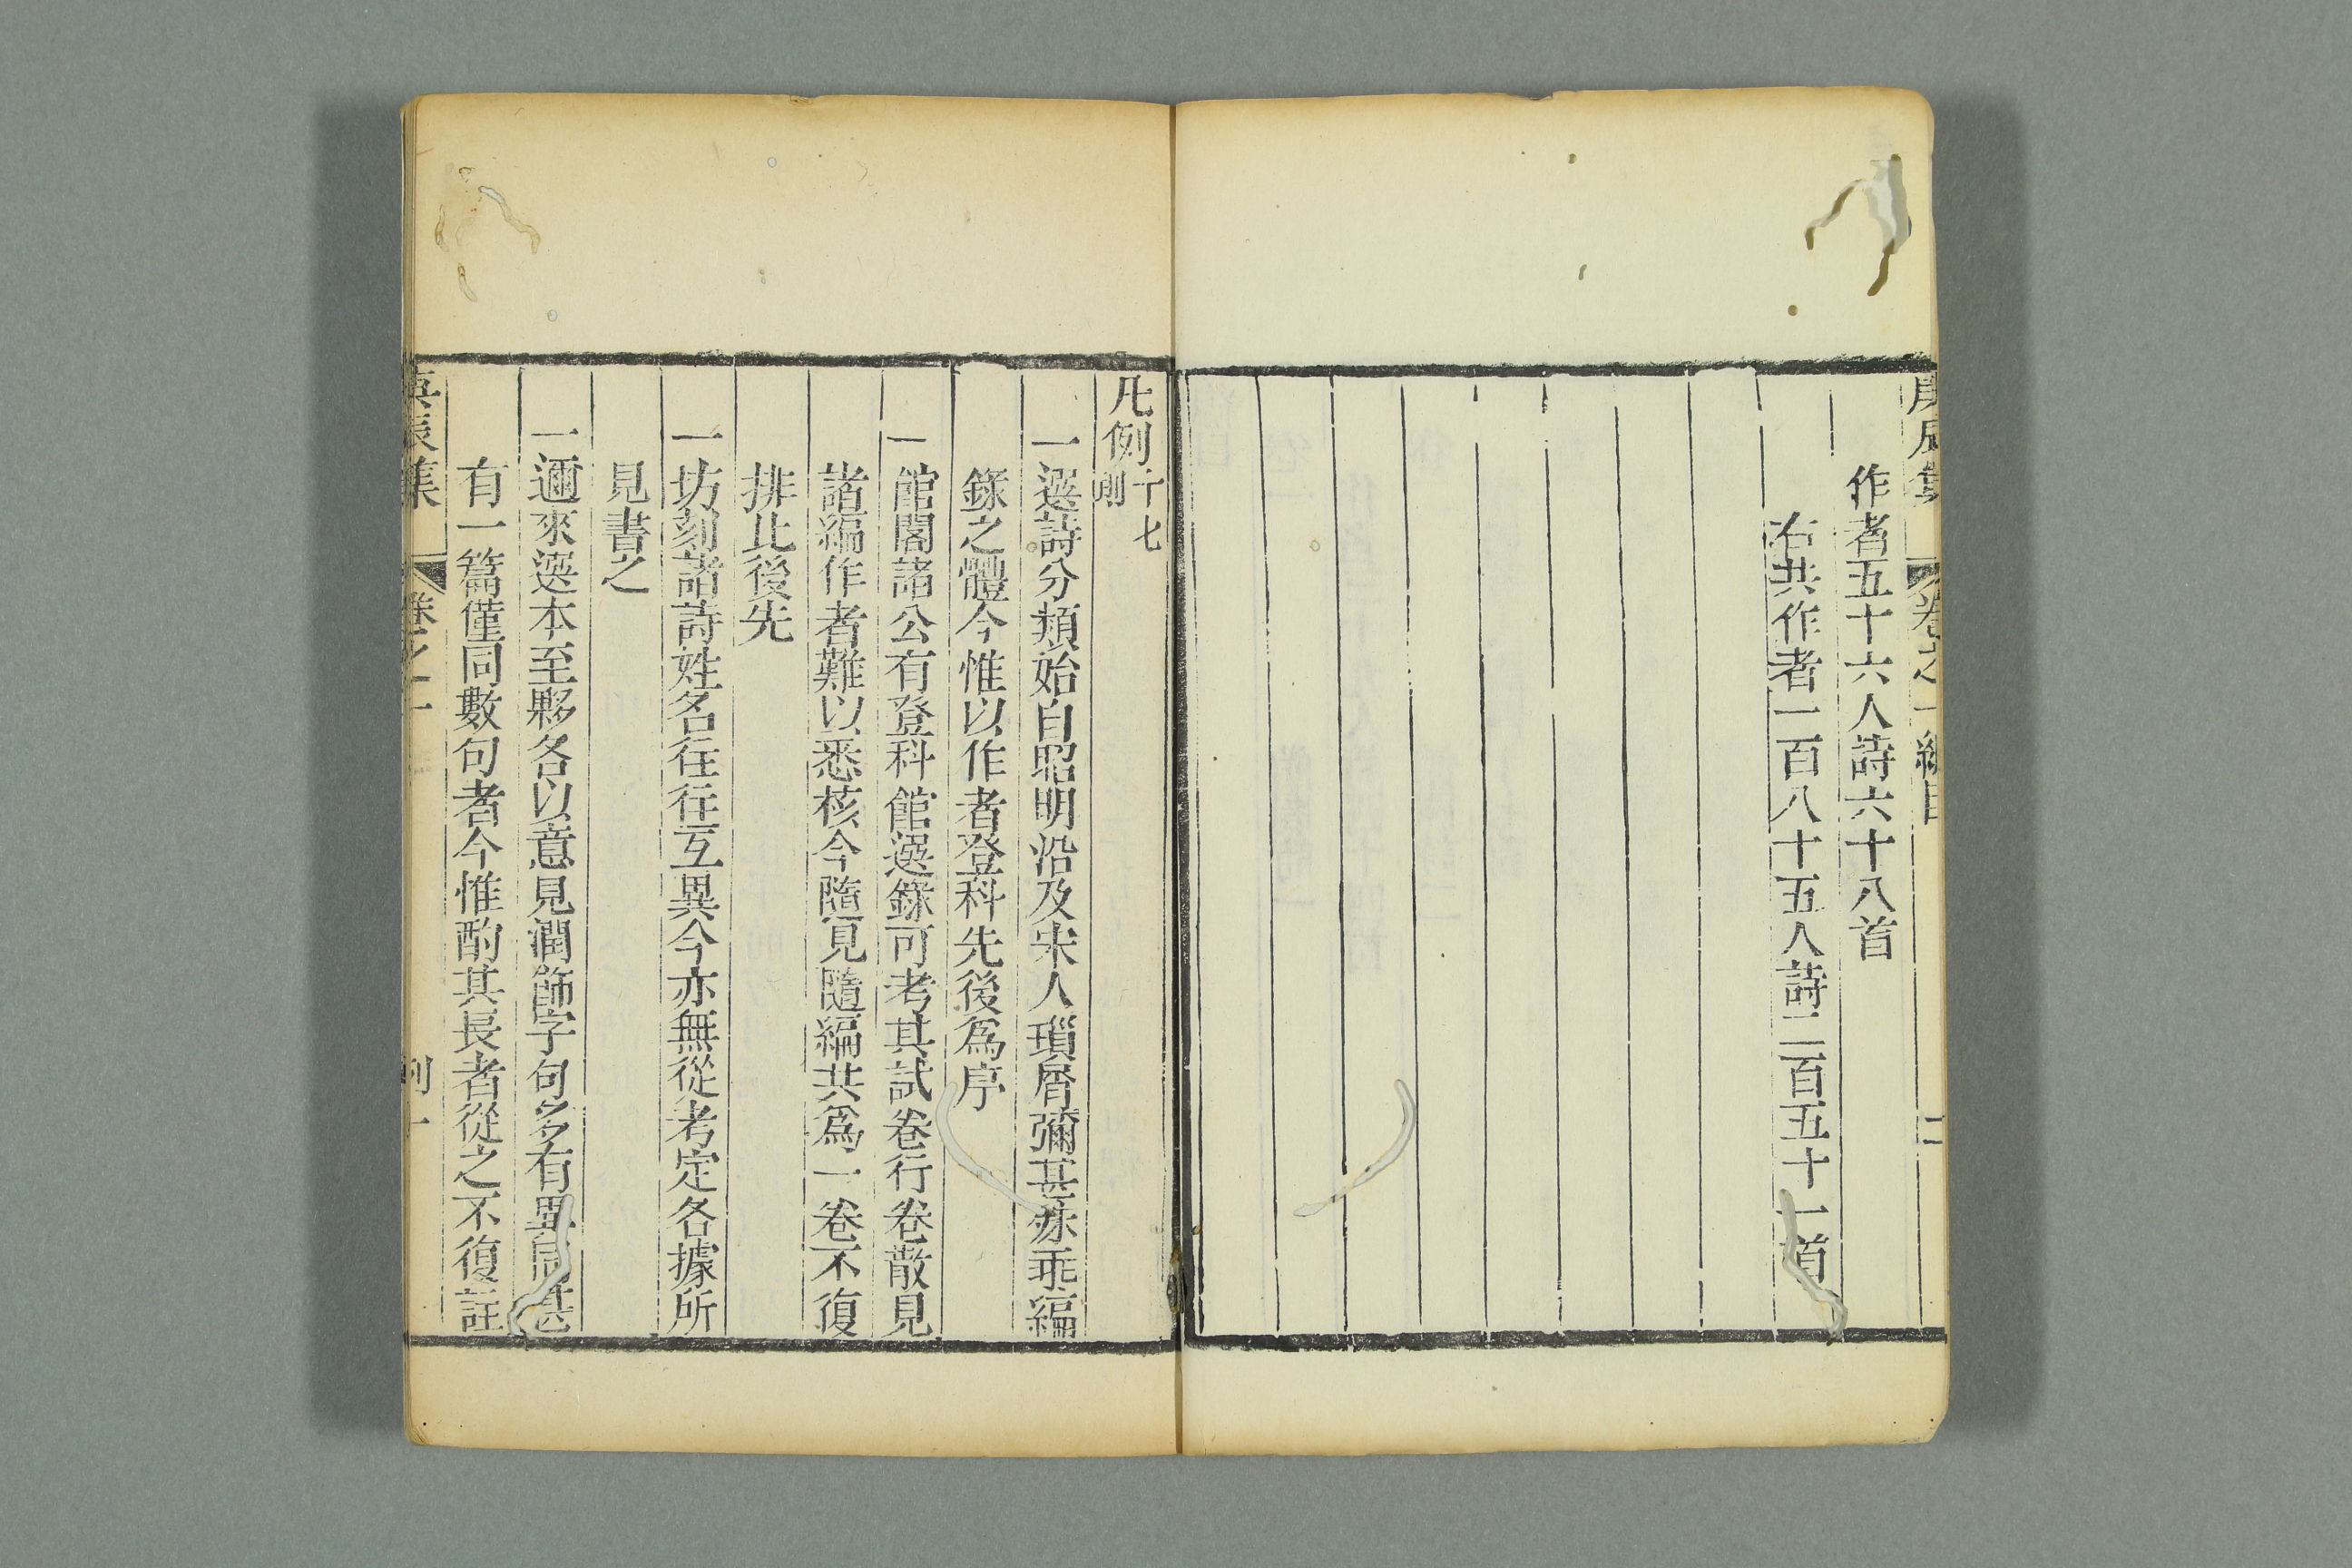 庚辰集 卷之一 總目 二
作者五十六人詩六十八首
右共作者一百八十五人詩二百五十一首
凡例十七則
一選詩分類始自昭明沿及宋人瑣屑彌甚殊乖編
錄之體今惟以作者登科先後爲序
一館閣諸公有登科館選錄可考其試卷行卷散見
諸編作者難以悉核今隨見隨編共爲一卷不復
排比後先
一坊刻諸詩姓名往往互異今亦無從考定各據所
見書之
一邇來選本至夥各以意見潤飾字句多有異同甚
有一篇僅同數句者今惟酌其長者從之不復註
庚辰集 卷之一 例一